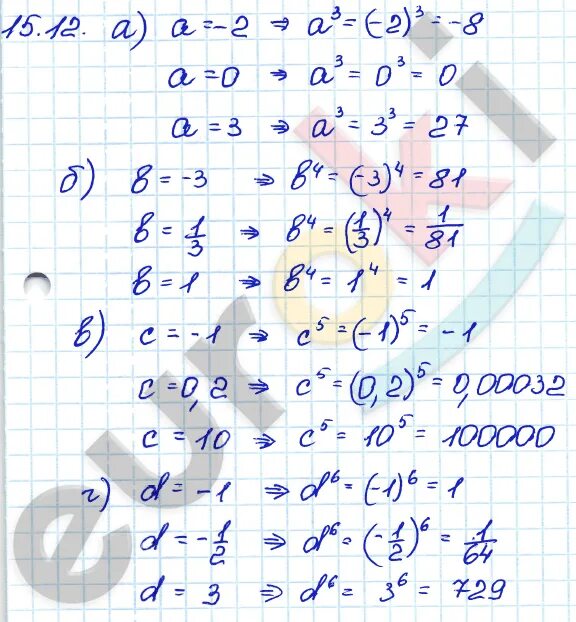 15.12. а) a = -2 ⇒ a³ = (-2)³ = -8
a = 0 ⇒ a³ = 0³ = 0
a = 3 ⇒ a³ = 3³ = 27
б) b = -3 ⇒ b⁴ = (-3)⁴ = 81
b = 1/3 ⇒ b⁴ = (1/3)⁴ = 1/81
b = 1 ⇒ b⁴ = 1⁴ = 1
в) c = -1 ⇒ c⁵ = (-1)⁵ = -1
c = 0,2 ⇒ c⁵ = (0,2)⁵ = 0,00032
c = 10 ⇒ c⁵ = 10⁵ = 100000
г) d = -1 ⇒ d⁶ = (-1)⁶ = 1
d = -1/2 ⇒ d⁶ = (-1/2)⁶ = 1/64
d = 3 ⇒ d⁶ = 3⁶ = 729
euroki